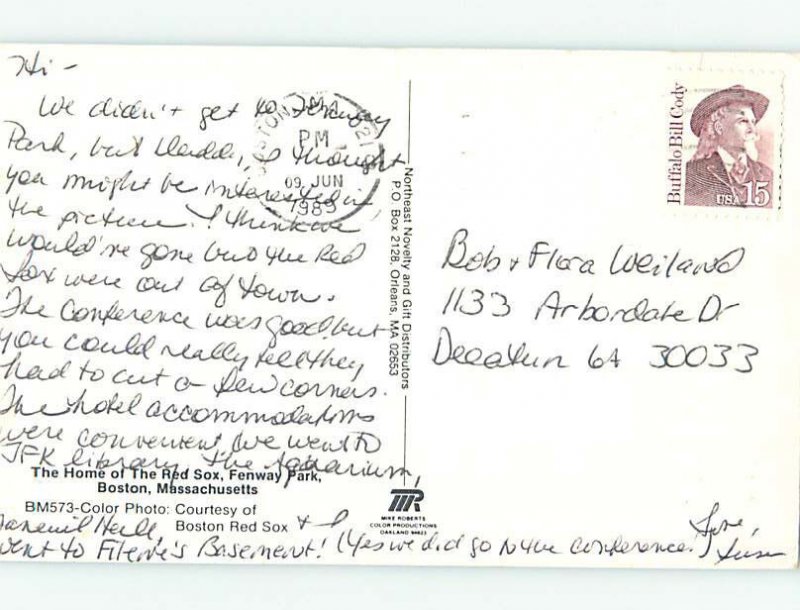 Hi -
We didn't get to Fenway
Park, but Daddy, I thought
you might be interested in
the picture. I think we
would've gone but the Red
Sox were out of town.
The conference was good but
you could really tell they
had to cut a few corners.
The hotel accommodations
were convenient. We went to
JFK library, the Aquarium,
The Home of The Red Sox, Fenway Park,
Boston, Massachusetts
BM573-Color Photo: Courtesy of
Boston Red Sox
Faneuil Hall, + I
went to Filene's Basement! (Yes we did go to the conference.)
Love,
Susan
BOSTON, MA 021
PM
09 JUN
1989
Northeast Novelty and Gift Distributors
P.O. Box 2128, Orleans, MA 02653
MIKE ROBERTS
COLOR PRODUCTIONS
OAKLAND 94623
Buffalo Bill Cody
USA 15
Bob + Flora Weiland
1133 Arbordale Dr
Decatur GA 30033